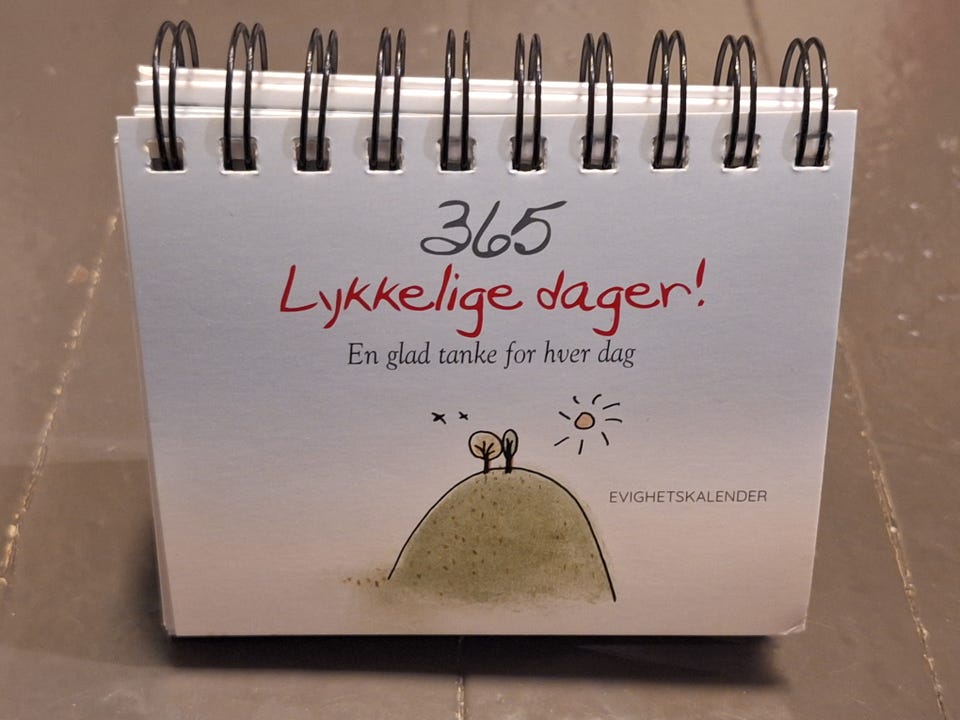 365
Lykkelige dager!
En glad tanke for hver dag
EVIGHETSKALENDER